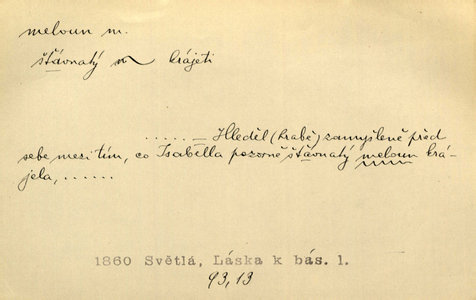 meloun m.
šťavnatý ~ krájeti
...... — Hleděl (hrabě) zamyšleně před
sebe mezi tím, co Isabella pozorně šťavnatý meloun krá-
jela, ......
1860 Světlá, Láska k bás. 1.
93,13